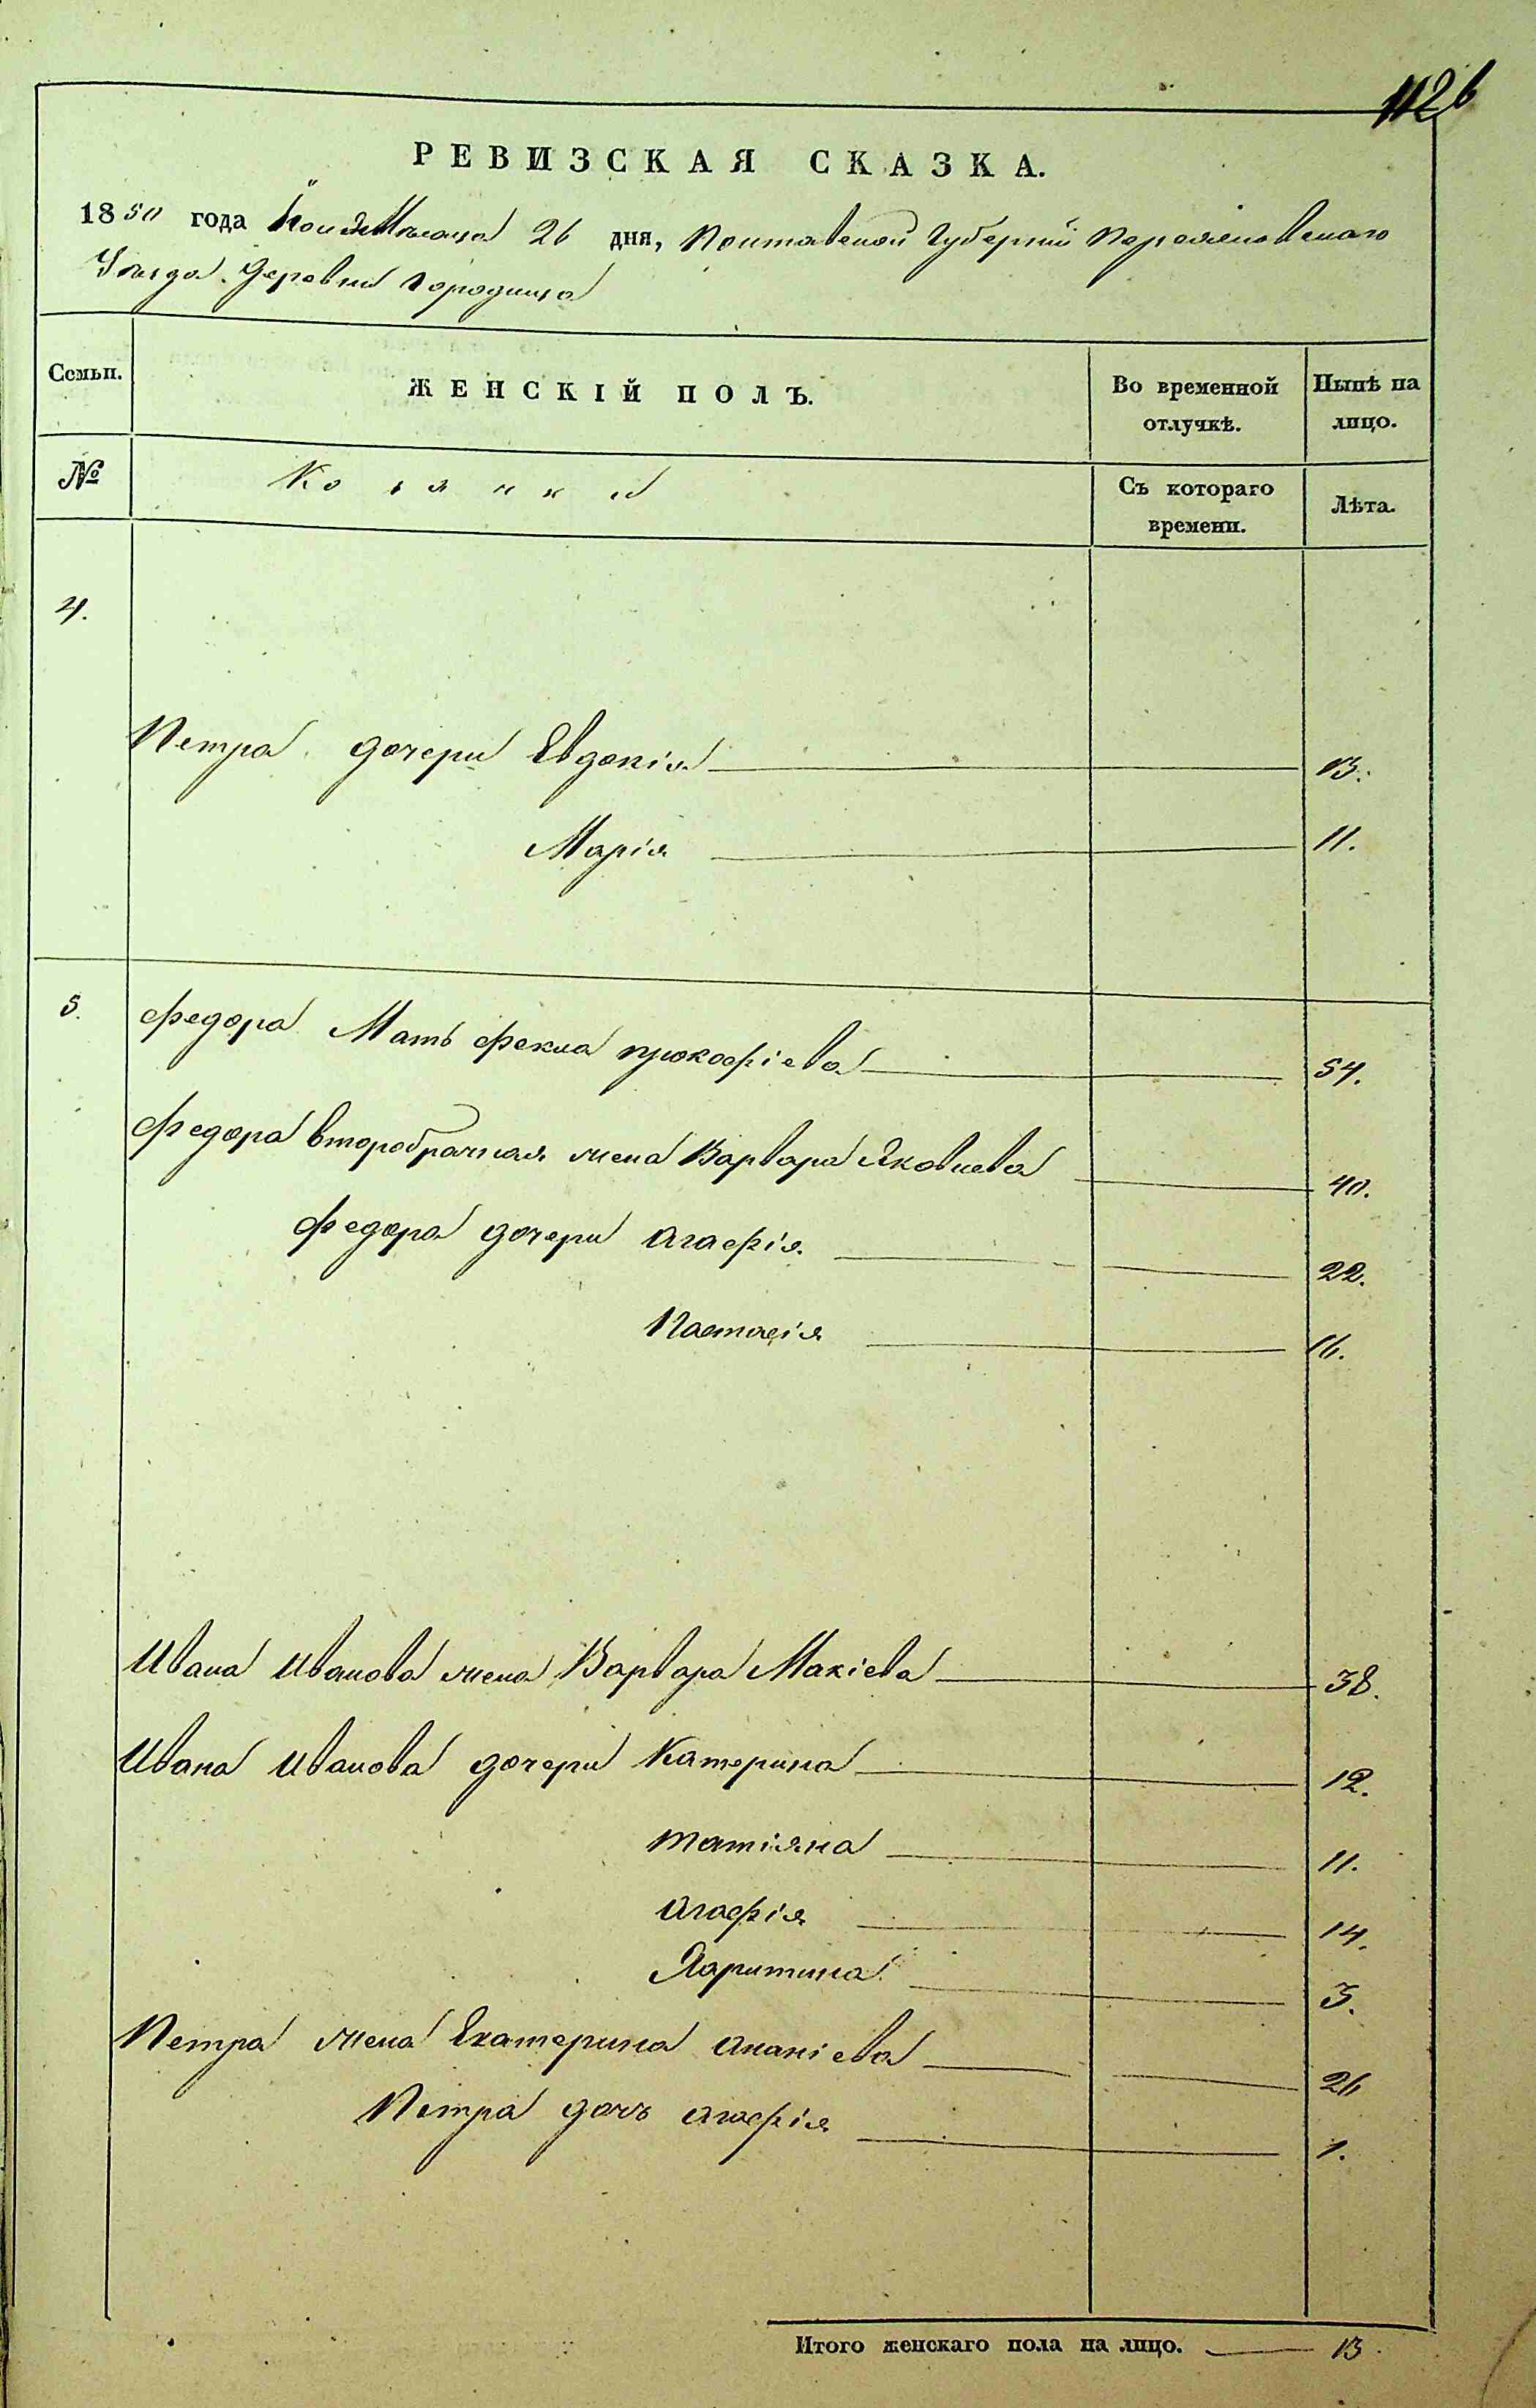 1126
РЕВИЗСКАЯ СКАЗКА.
1850 года Мѣсяца 26 дня, Полтавской Губернiи Переяславскаго
Уѣзда Деревни Городища
Семьи. ЖЕНСКІЙ ПОЛЪ. Во временной отлучкѣ. Нынѣ на лицо.
№ Козачки Съ котораго времени. Лѣта.
4.
Петра дочери Евдокія 13.
Марія 11.
5. Федора Мать Фекла Прокофіева 54.
Федора второбрачная жена Варвара Яковлева 40.
Федора дочери Агафія 22.
Настасія 16.
Ивана Иванова жена Варвара Макіева 38.
Ивана Иванова дочери Катерина 12.
Татіяна 11.
Агафія 14.
Харитина 3.
Петра жена Екатерина Ананіева 26
Петра дочь Агафія 1.
Итого женскаго пола на лицо. 13.